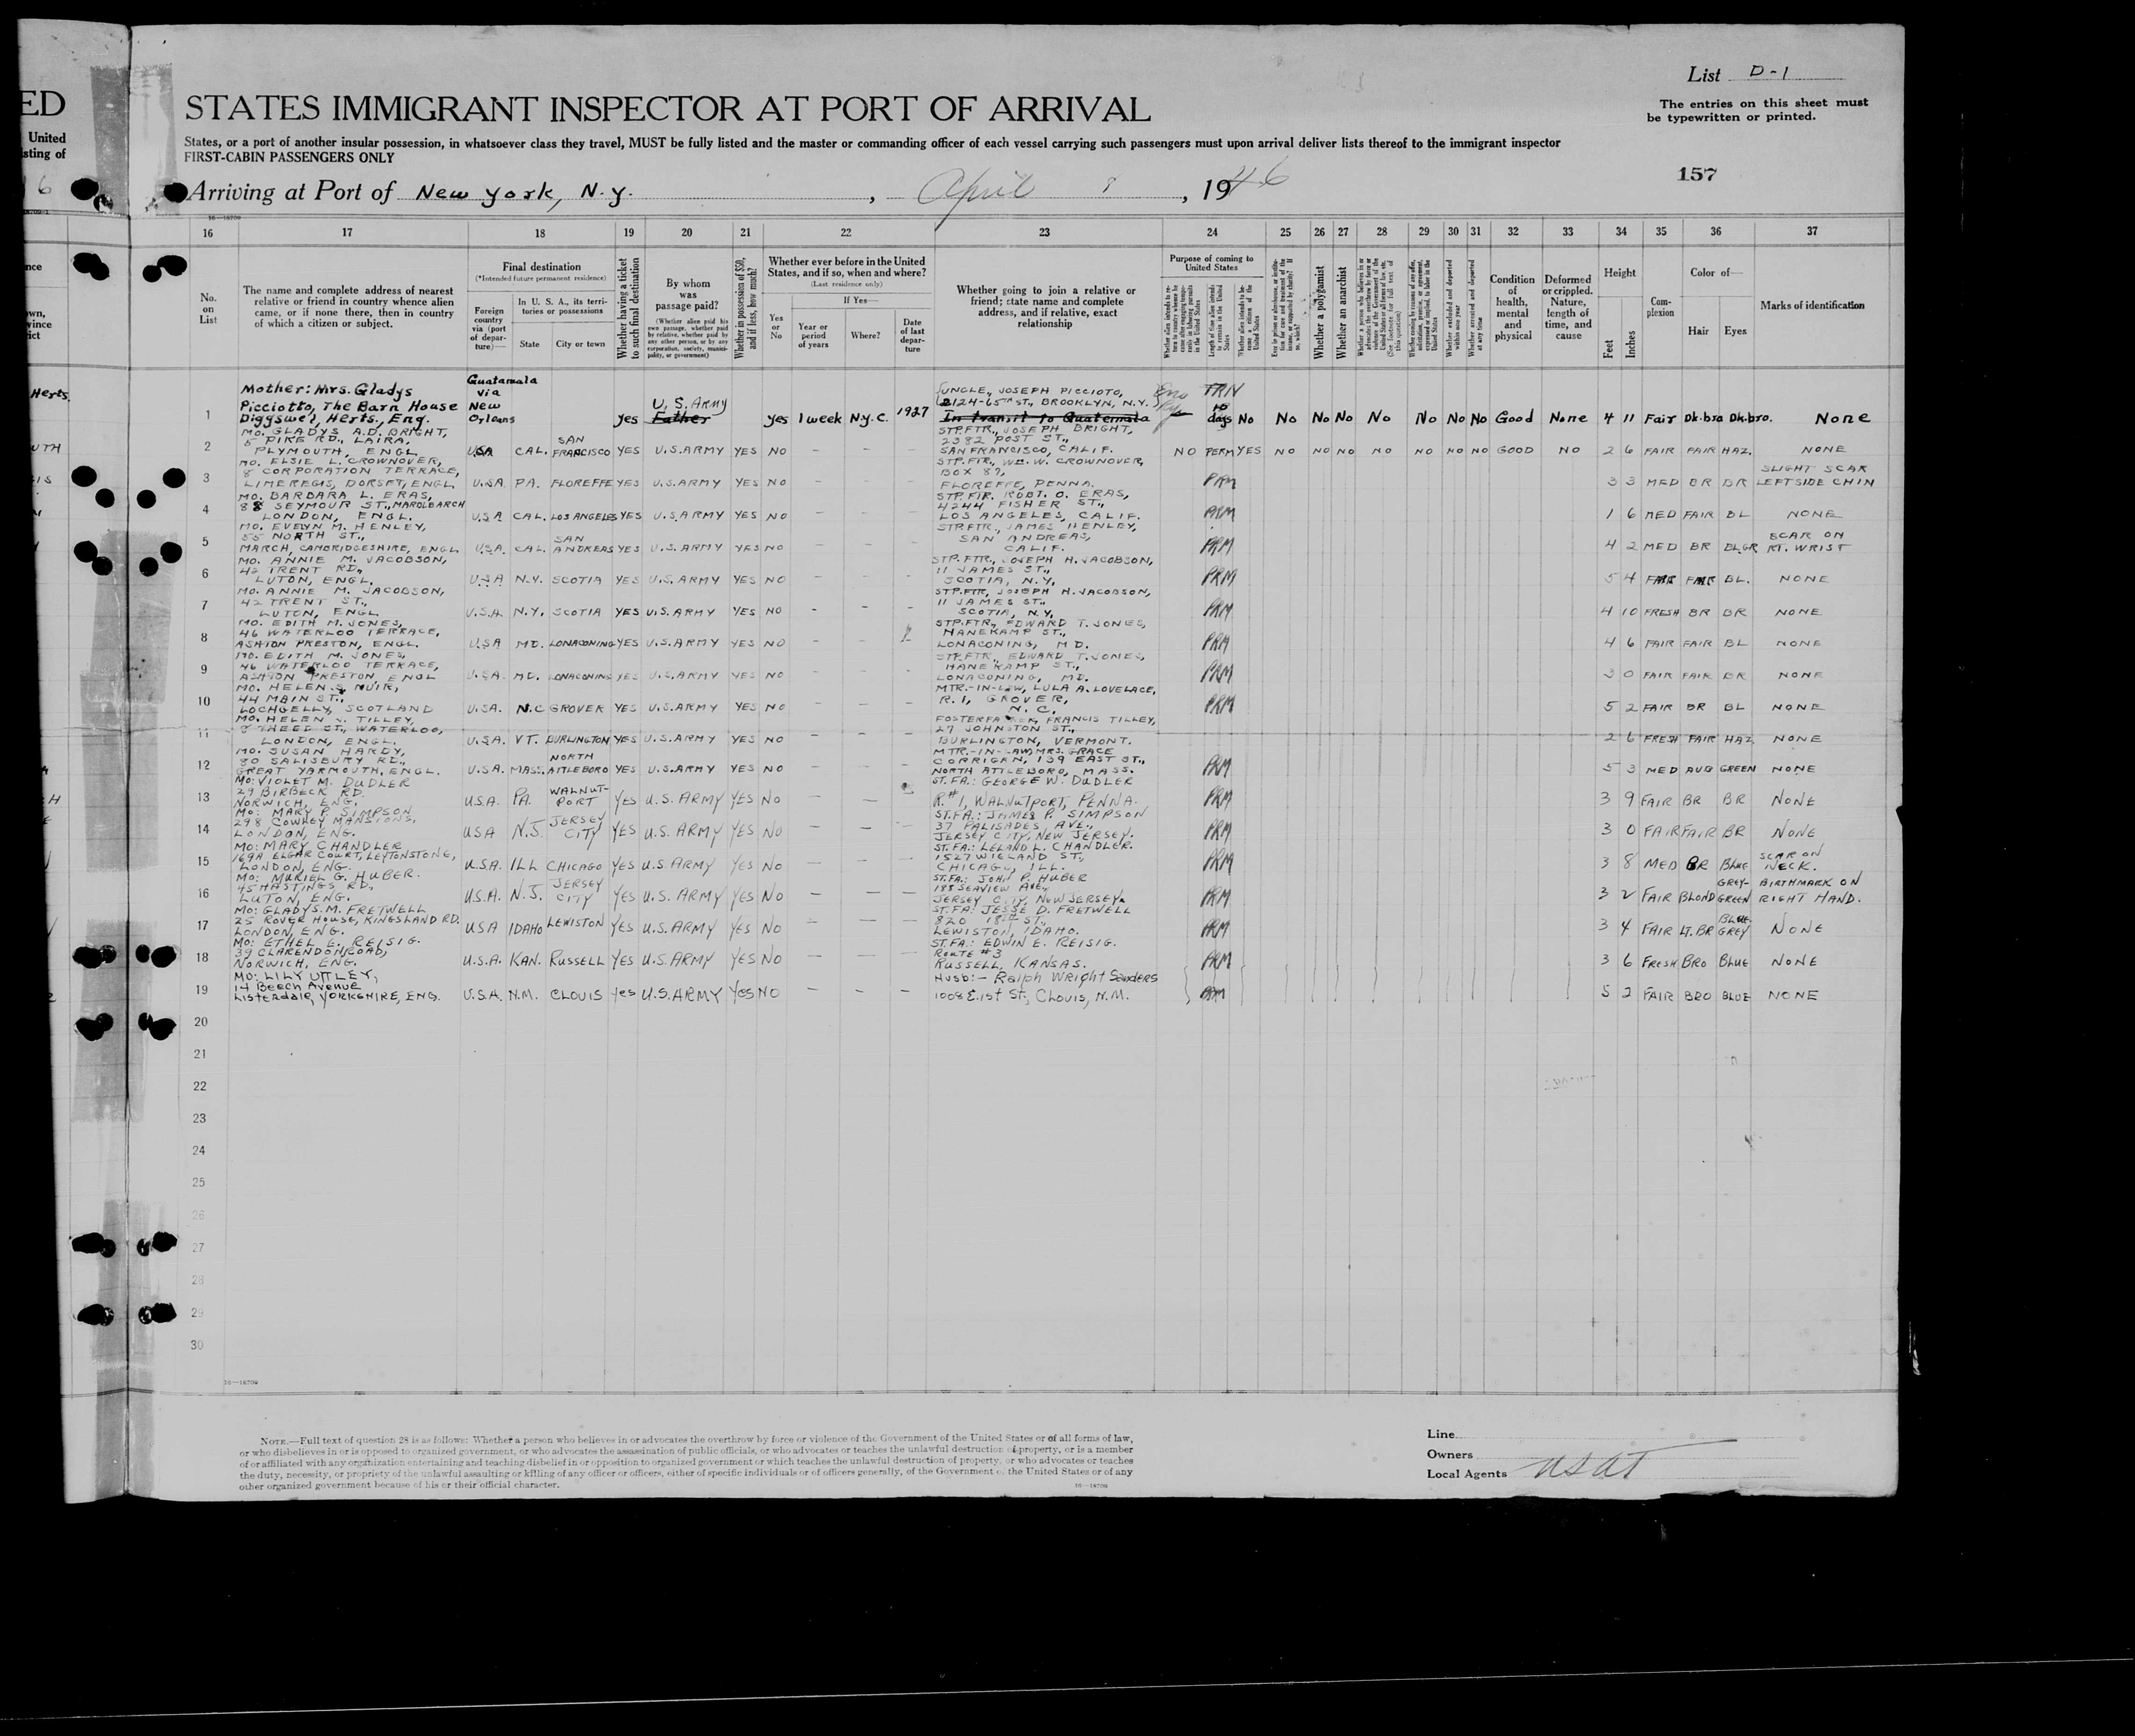 List D-1
ED
STATES IMMIGRANT INSPECTOR AT PORT OF ARRIVAL
The entries on this sheet must
be typewritten or printed.
United
sting of
States, or a port of another insular possession, in whatsoever class they travel, MUST be fully listed and the master or commanding officer of each vessel carrying such passengers must upon arrival deliver lists thereof to the immigrant inspector
FIRST-CABIN PASSENGERS ONLY
157
Arriving at Port of New York, N.Y. , April 8 , 1946
16—18709
16 17 18 19 20 21 22 23 24 25 26 27 28 29 30 31 32 33 34 35 36 37
No.
on
List
The name and complete address of nearest
relative or friend in country whence alien
came, or if none there, then in country
of which a citizen or subject.
Final destination
(*Intended future permanent residence)
Foreign
country
via (port
of depar-
ture)—
In U. S. A., its terri-
tories or possessions
State
City or town
Whether having a ticket
to such final destination
By whom
was
passage paid?
(Whether alien paid his
own passage, whether paid
by relative, whether paid by
any other person, or by any
corporation, society, munici-
pality, or government)
Whether in possession of $50,
and if less, how much?
Whether ever before in the United
States, and if so, when and where?
(Last residence only)
Yes
or
No
If Yes—
Year or
period
of years
Where?
Date
of last
depar-
ture
Whether going to join a relative or
friend; state name and complete
address, and if relative, exact
relationship
Purpose of coming to
United States
Whether a polygamist
Whether an anarchist
Whether excluded and deported
within one year
Whether arrested and deported
at any time
Condition
of
health,
mental
and
physical
Deformed
or crippled.
Nature,
length of
time, and
cause
Height
Feet
Inches
Com-
plexion
Color of—
Hair
Eyes
Marks of identification
Herts.
1
Mother: Mrs. Gladys
Picciotto, The Barn House
Diggswel, Herts., Eng.
Guatamala
via
New
Orleans
yes
U. S. Army
Father
yes 1 week N.Y.C. 1927
UNCLE, JOSEPH PICCIOTO,
2124-65TH ST., BROOKLYN, N.Y.
In transit to Guatemala
TRN
10
days No No No No No No No No Good None 4 11 Fair Dk.bro Dk.bro. None
2
MO. GLADYS A.D. BRIGHT,
5 PIKE RD., LAIRA,
PLYMOUTH, ENGL
USA CAL. SAN
FRANCISCO YES U.S.ARMY YES NO – – –
STP.FTR., JOSEPH BRIGHT,
2382 POST ST.,
SAN FRANCISCO, CALIF.
NO PERM YES NO NO NO NO NO NO NO GOOD NO 2 6 FAIR FAIR HAZ. NONE
3
MO. ELSIE L. CROWNOVER,
8 CORPORATION TERRACE,
LIMEREGIS, DORSET, ENGL
U.S.A. PA. FLOREFFE YES U.S.ARMY YES NO – – –
STP.FTR., WM. W. CROWNOVER,
BOX 87,
FLOREFFE, PENNA.
PRM 3 3 MED BR BR SLIGHT SCAR
LEFTSIDE CHIN
4
MO. BARBARA L. ERAS,
88 SEYMOUR ST., MAROLBARCH
LONDON, ENGL.
U.S.A CAL. LOS ANGELES YES U.S.ARMY YES NO – – –
STP.FTR. ROBT. O. ERAS,
4244 FISHER ST.,
LOS ANGELES, CALIF.
PRM 1 6 MED FAIR BL NONE
5
MO. EVELYN M. HENLEY,
55 NORTH ST.,
MARCH, CAMBRIDGESHIRE, ENGL
U.S.A. CAL. SAN
ANDREAS YES U.S.ARMY YES NO – – –
STP.FTR., JAMES HENLEY,
SAN ANDREAS,
CALIF.
PRM 4 2 MED BR BL.GR SCAR ON
RT. WRIST
6
MO. ANNIE M. JACOBSON,
42 TRENT RD.,
LUTON, ENGL.
U.S.A N.Y. SCOTIA YES U.S.ARMY YES NO – – –
STP. FTR., JOSEPH H. JACOBSON,
11 JAMES ST.,
SCOTIA, N.Y.
PRM 5 4 FAIR FAIR BL. NONE
7
MO. ANNIE M. JACOBSON,
42 TRENT ST.,
LUTON, ENGL
U.S.A. N.Y. SCOTIA YES U.S.ARMY YES NO – – –
STP.FTR., JOSEPH H. JACOBSON,
11 JAMES ST.,
SCOTIA, N.Y.
PRM 4 10 FRESH BR BR NONE
8
MO. EDITH M. JONES,
46 WATERLOO TERRACE,
ASHTON PRESTON, ENGL.
U.S.A MD. LONACONING YES U.S.ARMY YES NO – –
STP.FTR., EDWARD T. JONES,
HANEKAMP ST.,
LONACONING, MD.
PRM 4 6 FAIR FAIR BL NONE
9
MO. EDITH M. JONES,
46 WATERLOO TERRACE,
ASHTON PRESTON ENGL
U.S.A. MD. LONACONING YES U.S.ARMY YES NO – – –
STP.FTR., EDWARD T. JONES,
HANEKAMP ST.,
LONACONING, MD.
PRM 3 0 FAIR FAIR BR NONE
10
MO. HELEN S. MUIR,
44 MAIN ST.,
LOCHGELLY, SCOTLAND
U.S.A. N.C GROVER YES U.S.ARMY YES NO – – –
MTR.-IN-LAW, LULA A. LOVELACE,
R.1, GROVER,
N. C.
PRM 5 2 FAIR BR BL NONE
11
MO. HELEN TILLEY,
8 THEED ST., WATERLOO,
LONDON, ENGL.
U.S.A. VT. BURLINGTON YES U.S.ARMY YES NO – – –
FRANCIS TILLEY,
27 JOHNSTON ST.,
BURLINGTON, VERMONT.
2 6 FRESH FAIR HAZ NONE
12
MO. SUSAN HARDY,
80 SALISBURY RD.,
GREAT YARMOUTH, ENGL.
U.S.A. MASS. NORTH
ATTLEBORO YES U.S.ARMY YES NO – – –
MTR.-IN-LAW, MRS. GRACE
CORRIGAN, 139 EAST ST.,
NORTH ATTLEBORO, MASS.
PRM 5 3 MED AUB GREEN NONE
13
MO: VIOLET M. DUDLER
29 BIRBECK RD.
NORWICH, ENG.
U.S.A. PA. WALNUT-
PORT YES U.S. ARMY YES NO – –
ST. FA.: GEORGE W. DUDLER
R.#1, WALNUTPORT, PENNA.
PRM 3 9 FAIR BR BR NONE
14
MO: MARY P. SIMPSON
298 COWLEY MANSIONS,
LONDON, ENG.
USA N.J. JERSEY
CITY YES U.S. ARMY YES NO – – –
ST.FA.: JAMES P. SIMPSON
37 PALISADES AVE.,
JERSEY CITY, NEW JERSEY.
PRM 3 0 FAIR FAIR BR NONE
15
MO: MARY CHANDLER
169A ELGAR COURT, LEYTONSTONE,
LONDON, ENG.
U.S.A. ILL CHICAGO YES U.S. ARMY YES NO – – –
ST. FA.: LELAND L. CHANDLER.
1527 WIELAND ST.,
CHICAGO, ILL.
PRM 3 8 MED BR BLUE SCAR ON
NECK.
16
MO: MURIEL G. HUBER.
45 HASTINGS RD.,
LUTON, ENG.
U.S.A. N.J. JERSEY
CITY YES U.S. ARMY YES NO – – –
ST.FA.: JOHN P. HUBER
188 SEAVIEW AVE.,
JERSEY CITY, NEW JERSEY.
PRM 3 2 FAIR BLOND GREY-
GREEN BIRTHMARK ON
RIGHT HAND.
17
MO: GLADYS. M. FRETWELL
25 ROVER HOUSE, KINGSLAND RD.
LONDON, ENG.
USA IDAHO LEWISTON YES U.S. ARMY YES NO – – –
ST.FA: JESSE D. FRETWELL
820 18TH ST.,
LEWISTON, IDAHO.
PRM 3 4 FAIR LT. BR BLUE
GREY NONE
18
MO: ETHEL E. REISIG.
39 CLARENDON ROAD,
NORWICH, ENG.
U.S.A. KAN. RUSSELL YES U.S. ARMY YES NO – – –
ST.FA.: EDWIN E. REISIG.
ROUTE #3
RUSSELL, KANSAS.
PRM 3 6 FRESH BRO BLUE NONE
19
MO: LILY UTTLEY,
14 Beech Avenue
Listerdale, YORKSHIRE, ENG.
U.S.A. N.M. CLOVIS Yes U.S. ARMY YES NO – – –
Husb:- Ralph Wright Sanders
1008 E. 1st St., Clovis, N.M.
PRM 5 2 FAIR BRO BLUE NONE
20
21
22
23
24
25
26
27
28
29
30
16—18709
NOTE.—Full text of question 28 is as follows: Whether a person who believes in or advocates the overthrow by force or violence of the Government of the United States or of all forms of law,
or who disbelieves in or is opposed to organized government, or who advocates the assassination of public officials, or who advocates or teaches the unlawful destruction of property, or is a member
of or affiliated with any organization entertaining and teaching disbelief in or opposition to organized government or which teaches the unlawful destruction of property, or who advocates or teaches
the duty, necessity, or propriety of the unlawful assaulting or killing of any officer or officers, either of specific individuals or of officers generally, of the Government of the United States or of any
other organized government because of his or their official character.
16—18709
Line
Owners
Local Agents USAT